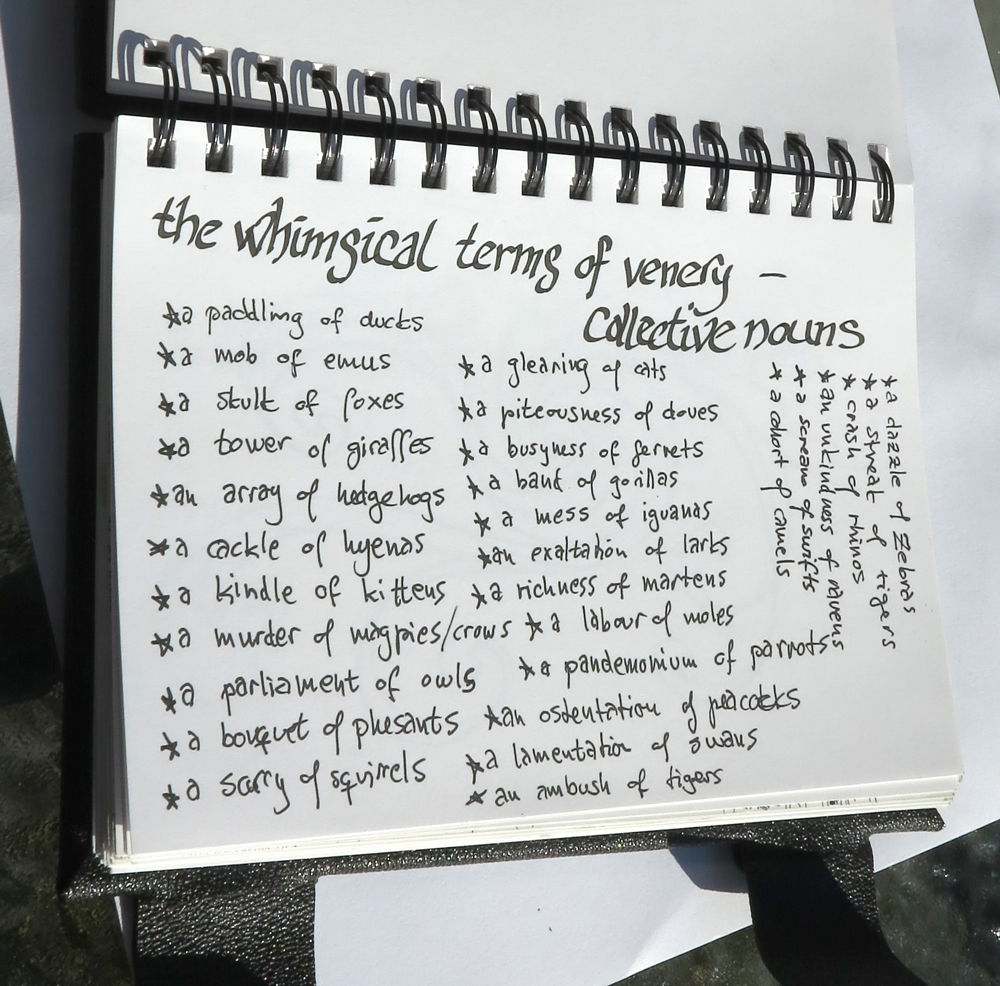 the whimsical terms of venery –
collective nouns
*a paddling of ducks
*a mob of emus
*a skulk of foxes
*a tower of giraffes
*an array of hedgehogs
*a cackle of hyenas
*a kindle of kittens
*a murder of magpies/crows
*a parliament of owls
*a bouquet of phesants
*a scurry of squirrels
*a gleaning of cats
*a piteousness of doves
*a busyness of ferrets
*a band of gorillas
*a mess of iguanas
*an exaltation of larks
*a richness of martens
*a labour of moles
*a pandemonium of parrots
*an ostentation of peacocks
*a lamentation of swans
*an ambush of tigers
*a dazzle of zebras
*a streak of tigers
*crash of rhinos
*an unkindness of ravens
*a scream of swifts
*a cohort of camels